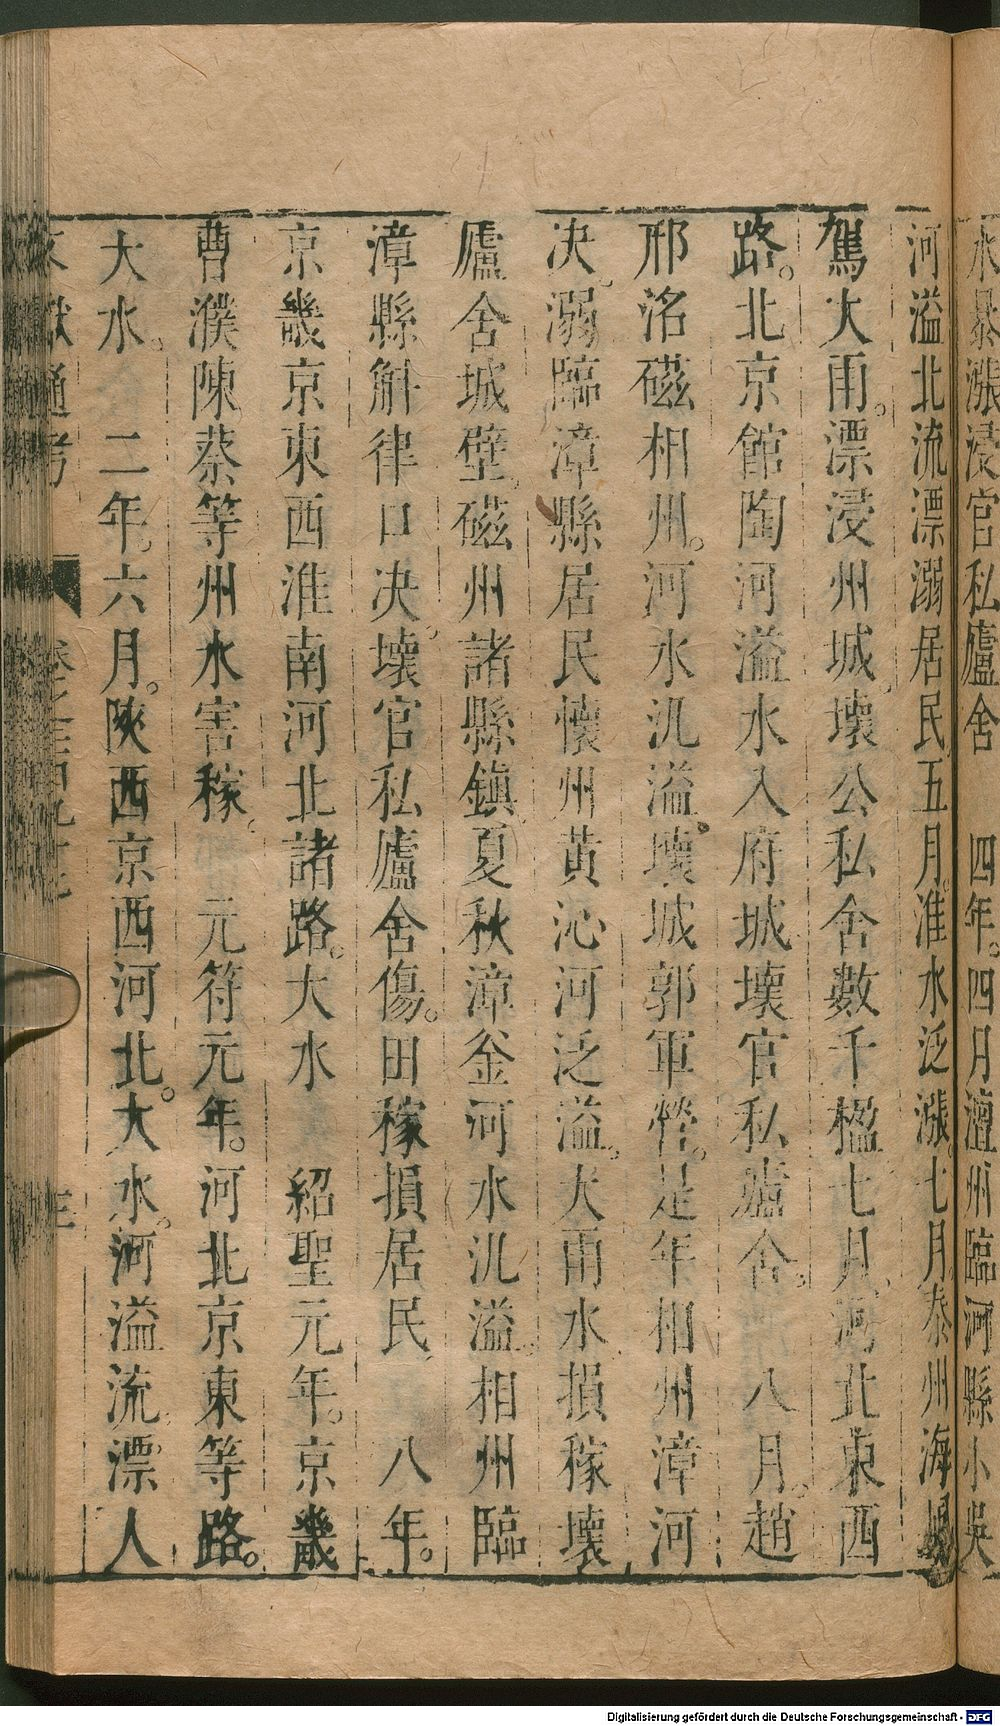 水暴漲浸官私廬舍　四年。四月澶州臨河縣小吳
河溢北流漂溺居民五月淮水泛漲。七月泰州海
駕大雨。漂浸州城。壞公私舍數千楹七月。河北東西
路。北京館陶河溢水入府城壞官私廬舍。八月。趙
邢洺磁相州。河水汎溢。壞城郭軍營。是年相州漳河
决。溺臨漳縣居民懷州黃沁河泛溢。大雨水損稼壞
廬舍城壁。磁州諸縣鎮夏秋漳釡河水汎溢。相州臨
漳縣斛律口决。壞官私廬舍傷。田稼損居民。　八年。
京畿京東西淮南河北諸路。大水　紹聖元年。京畿
曹濮陳蔡等州水害稼。　元符元年。河北京東等路。
大水。　二年。六月。陜西京西河北。大水。河溢流。漂人
通考
Digitalisierung gefördert durch die Deutsche Forschungsgemeinschaft - DFG